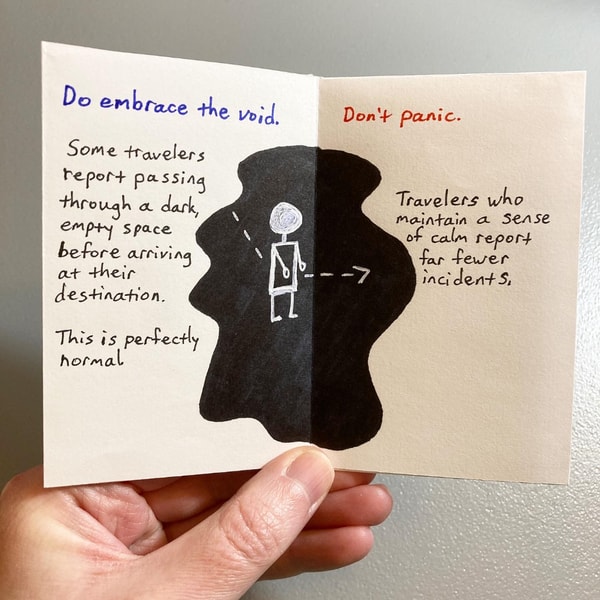 Do embrace the void.
Some travelers
report passing
through a dark,
empty space
before arriving
at their
destination.
This is perfectly
normal
Don't panic.
Travelers who
maintain a sense
of calm report
far fewer
incidents.